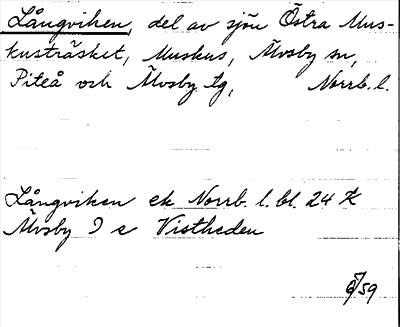 Långviken, del av sjön Östra Mus-
kusträsket, Muskus, Älvsby sn,
Piteå och Älvsby tg, Norrb. l.
Långviken ek Norrb. l. bl. 24
Älvsby 9 e Vistheden
/59